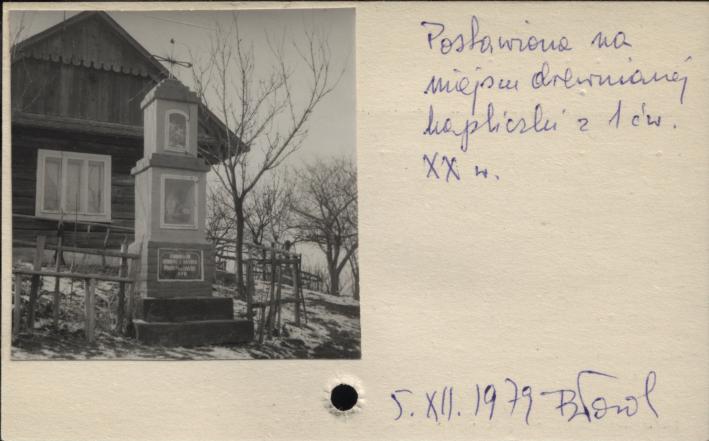 Postawiona na
miejscu drewnianej
kapliczki z 1 ćw.
XX w.
5. XII. 1979